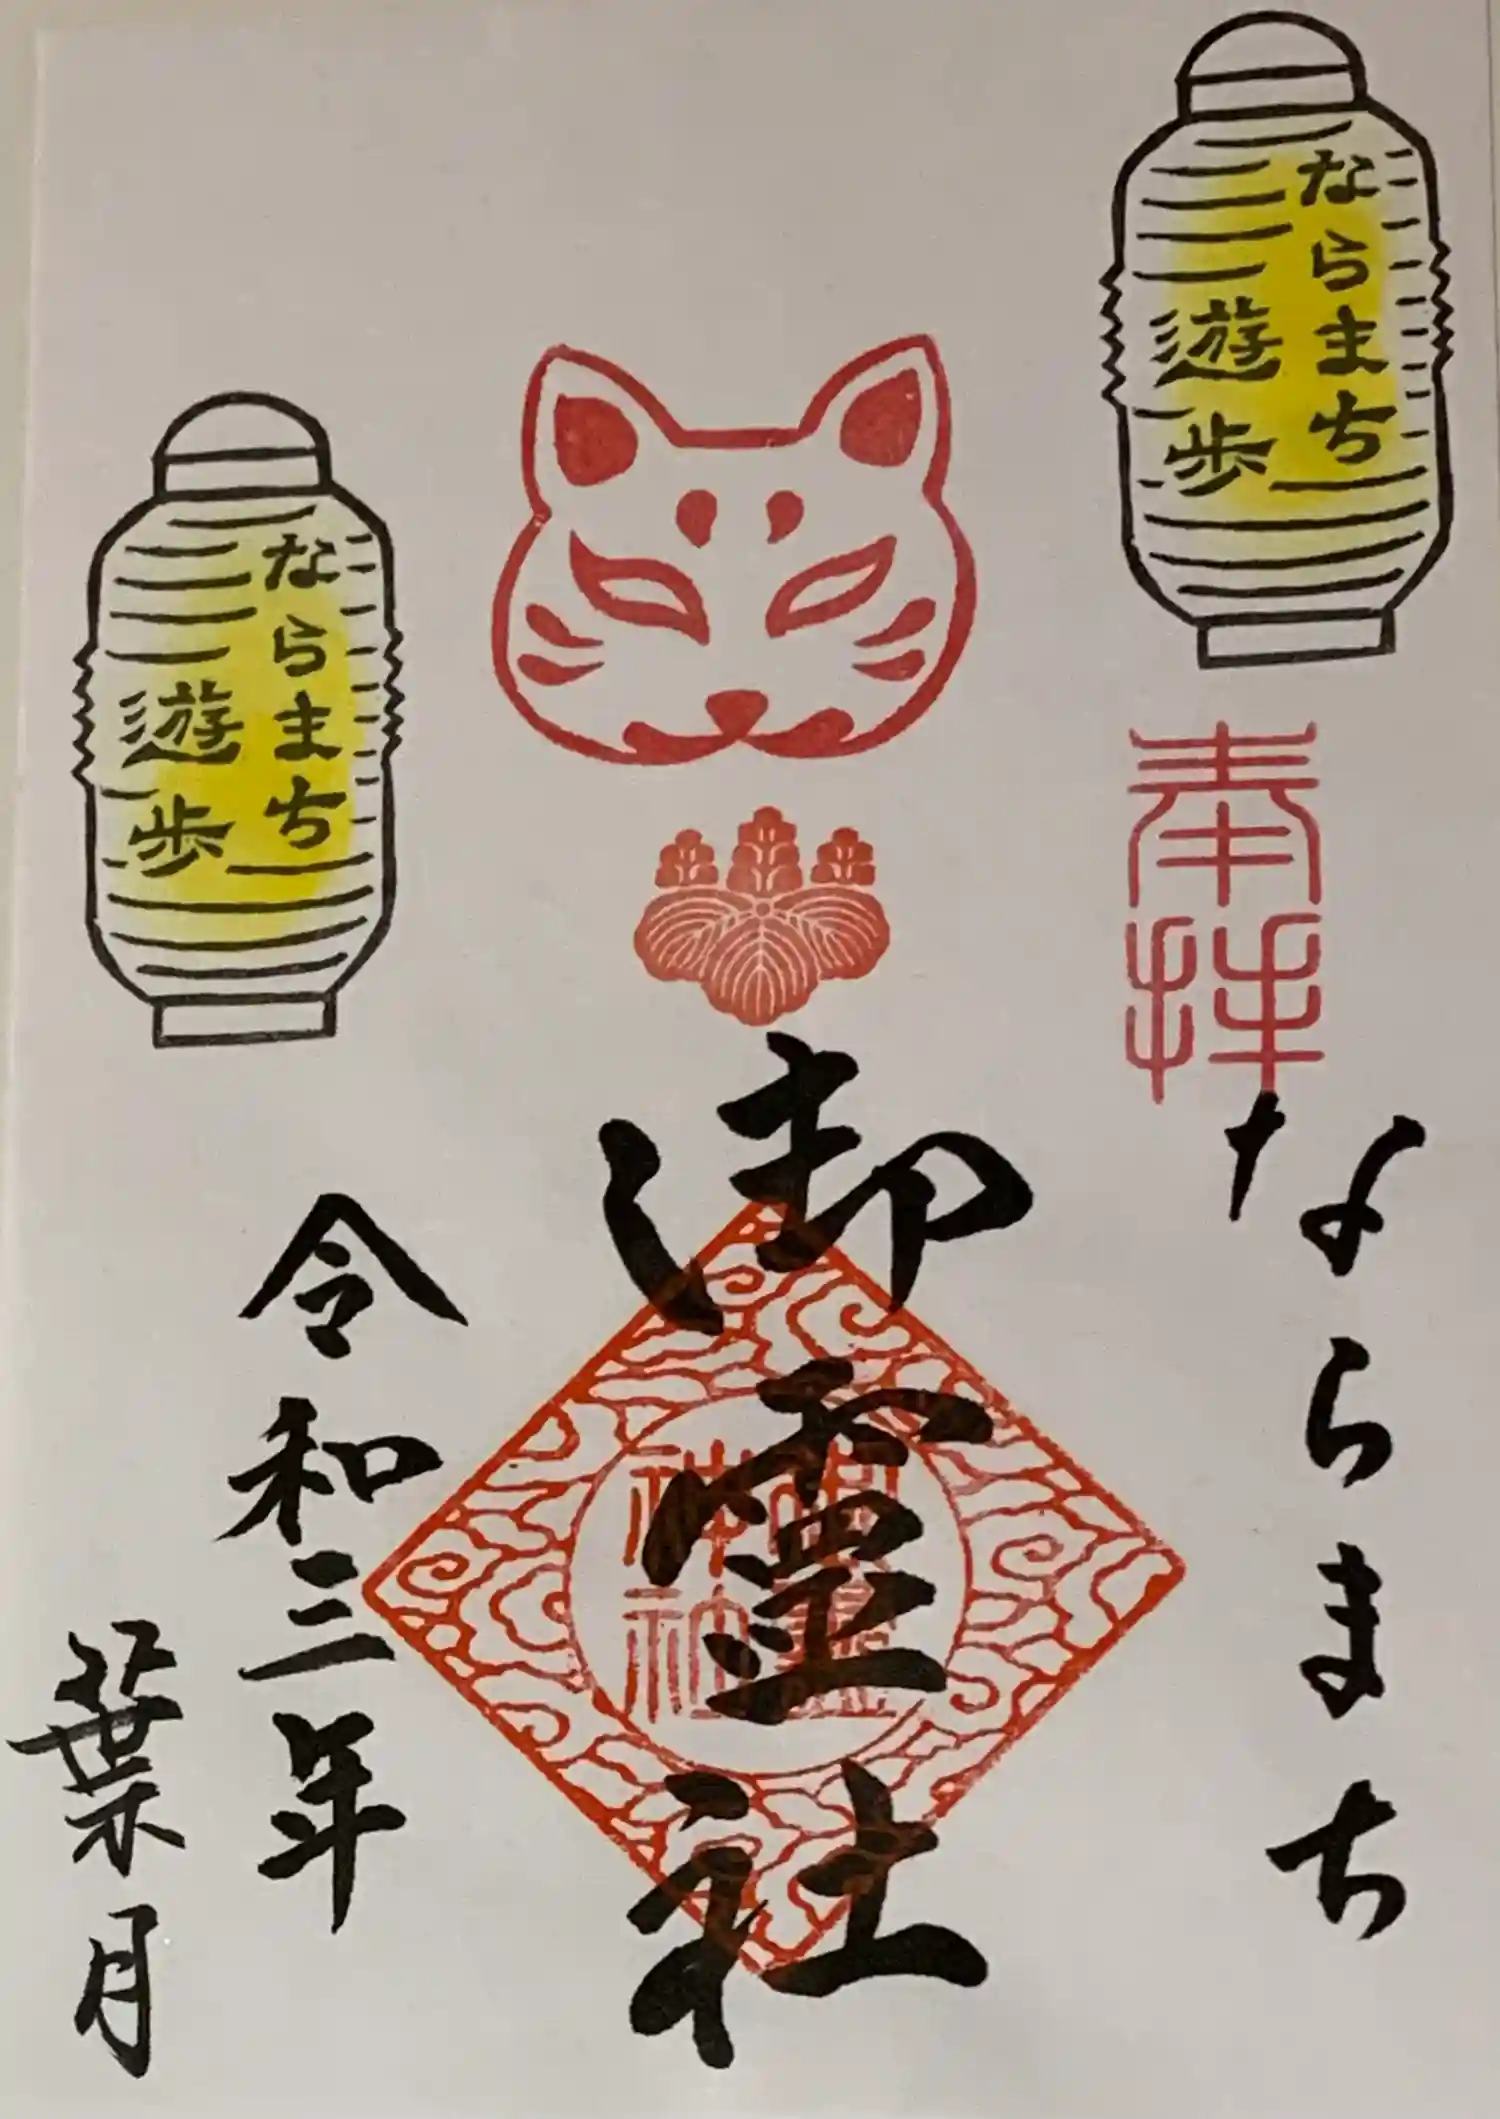 ならまち
遊歩
奉拝
ならまち
御霊社
ならまち
遊歩
令和三年
葉月